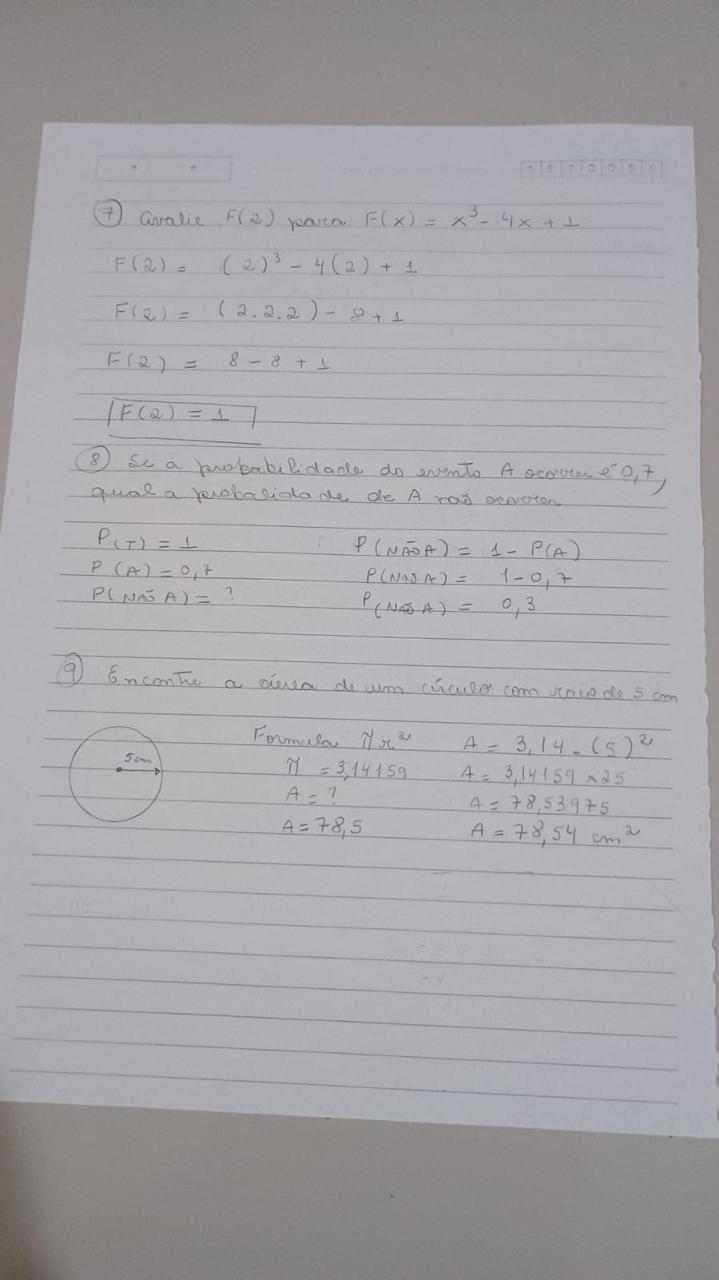 7 Avalie F(2) para F(x) = x³ - 4x + 1
F(2) = (2)³ - 4(2) + 1
F(2) = (2.2.2) - 8 + 1
F(2) = 8 - 8 + 1
F(2) = 1
8 Se a probabilidade do evento A ocorrer é 0,7,
qual a probalidade de A não ocorrer
P(T) = 1
P(A) = 0,7
P(NÃO A) = ?
P(NÃO A) = 1 - P(A)
P(NÃO A) = 1 - 0,7
P(NÃO A) = 0,3
9 Encontre a área de um círculo com raio de 5 cm
5cm
Formula πr²
π = 3,14159
A = ?
A = 78,5
A = 3,14 . (5)²
A = 3,14159 x 25
A = 78,53975
A = 78,54 cm²